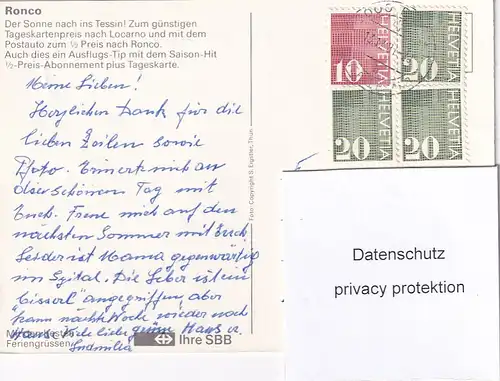 Ronco
Der Sonne nach ins Tessin! Zum günstigen
Tageskartenpreis nach Locarno und mit dem
Postauto zum ½ Preis nach Ronco.
Auch dies ein Ausflugs-Tip mit dem Saison-Hit
½-Preis-Abonnement plus Tageskarte.
Meine Lieben!
Herzlichen Dank für die
lieben Zeilen sowie
Foto. Erinert mich an
diesen schönen Tag mit
Euch. Freue mich auf den
nächsten Sommer mit Euch
Leider ist Mama gegenwärtig
im Spital. Die Leber ist ein
"bissal" angegriffen aber
kann nächste Woche wieder nach
Hause. Viele liebe grüsse Hans u.
Ludmilla
Feriengrüssen
Ihre SBB
Foto: Copyright S. Eigstler, Thun
HELVETIA
10
HELVETIA
20
HELVETIA
20
HELVETIA
20
Datenschutz
privacy protektion